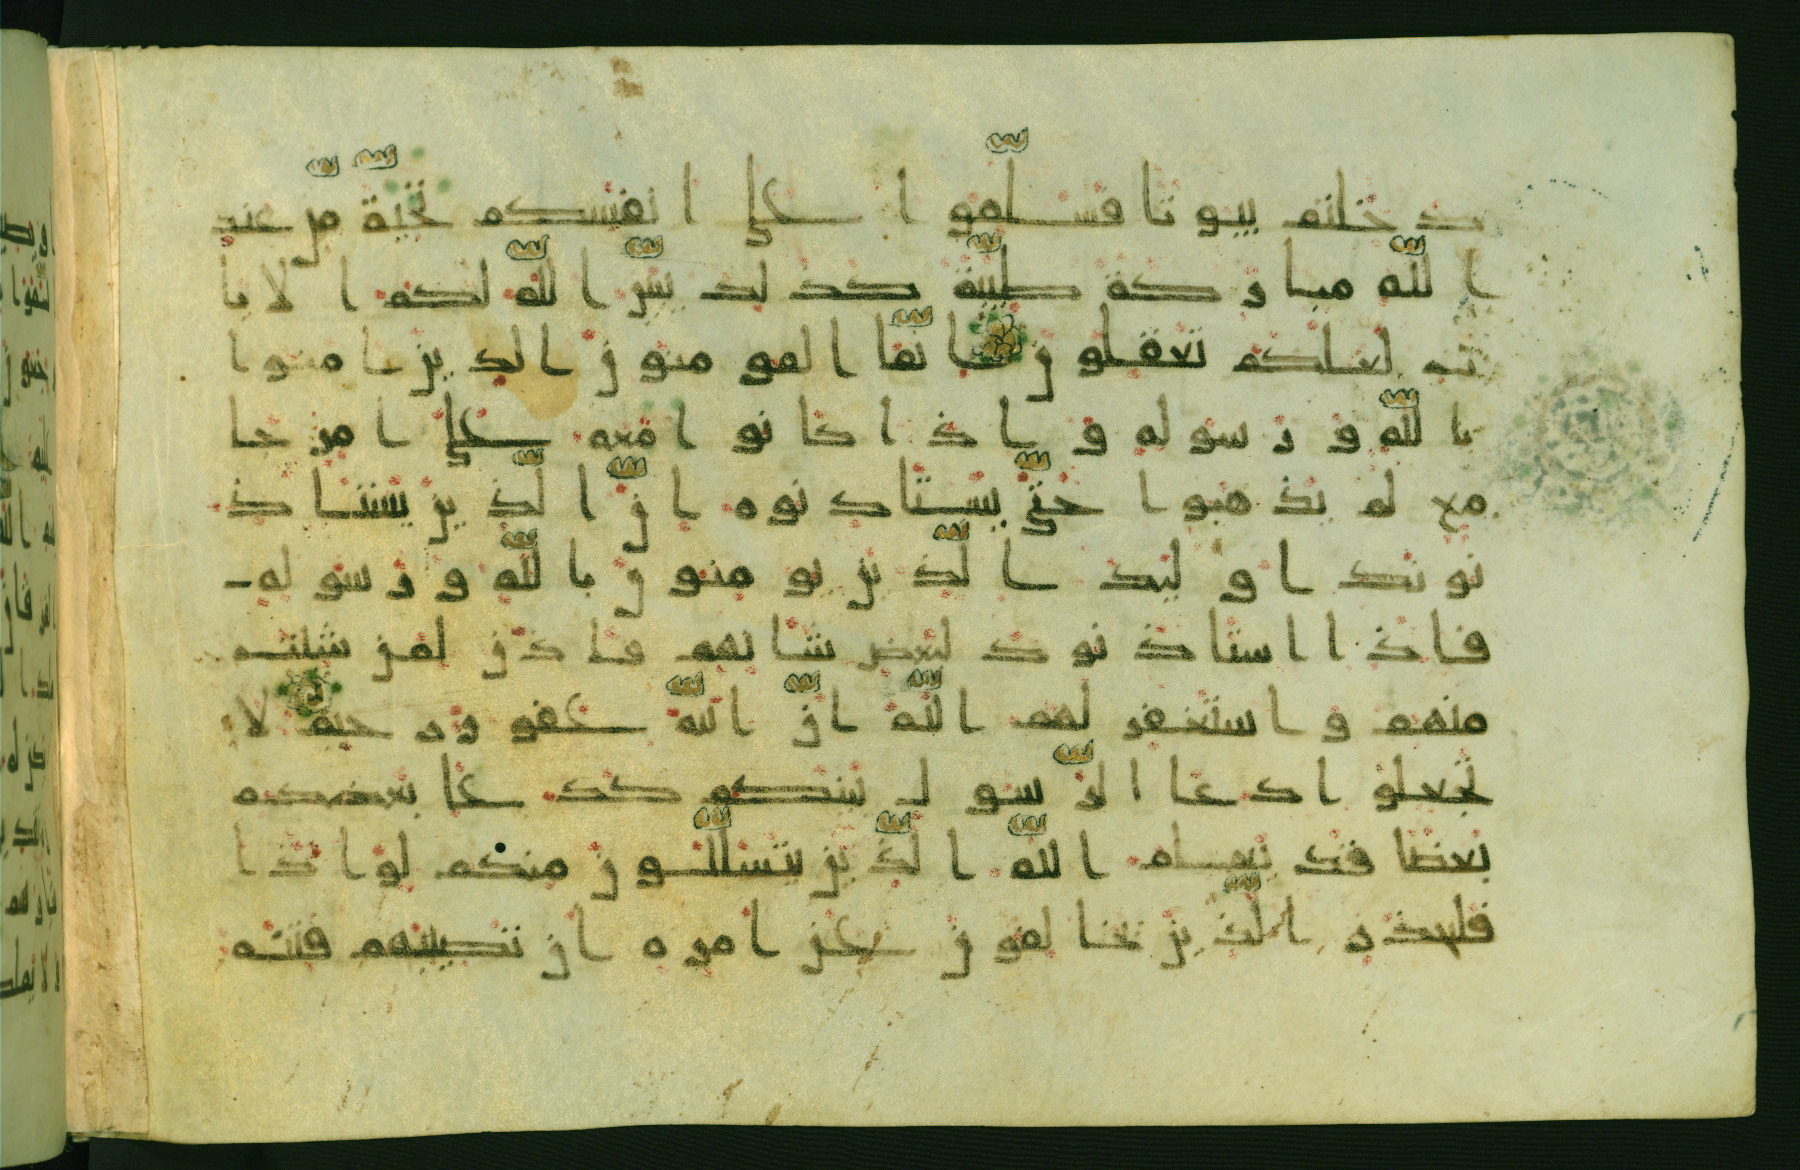 دخلتم بيوتا فسلموا على انفسكم تحية من عند
الله مباركة طيبة كذلك يبين الله لكم الايا
ت لعلكم تعقلون انما المومنون الذين امنوا
بالله ورسوله واذا كانوا معه على امر جا
مع لم يذهبوا حتى يستاذنوه ان الذين يستاذ
نونك اوليك الذين يومنون بالله ورسوله
فاذا استاذنوك لبعض شانهم فاذن لمن شئت
منهم واستغفر لهم الله ان الله غفور رحيم لا
تجعلوا دعا الرسول بينكم كدعا بعضكم
بعضا قد يعلم الله الذين يتسللون منكم لواذا
فليحذر الذين يخالفون عن امره ان تصيبهم فتنة